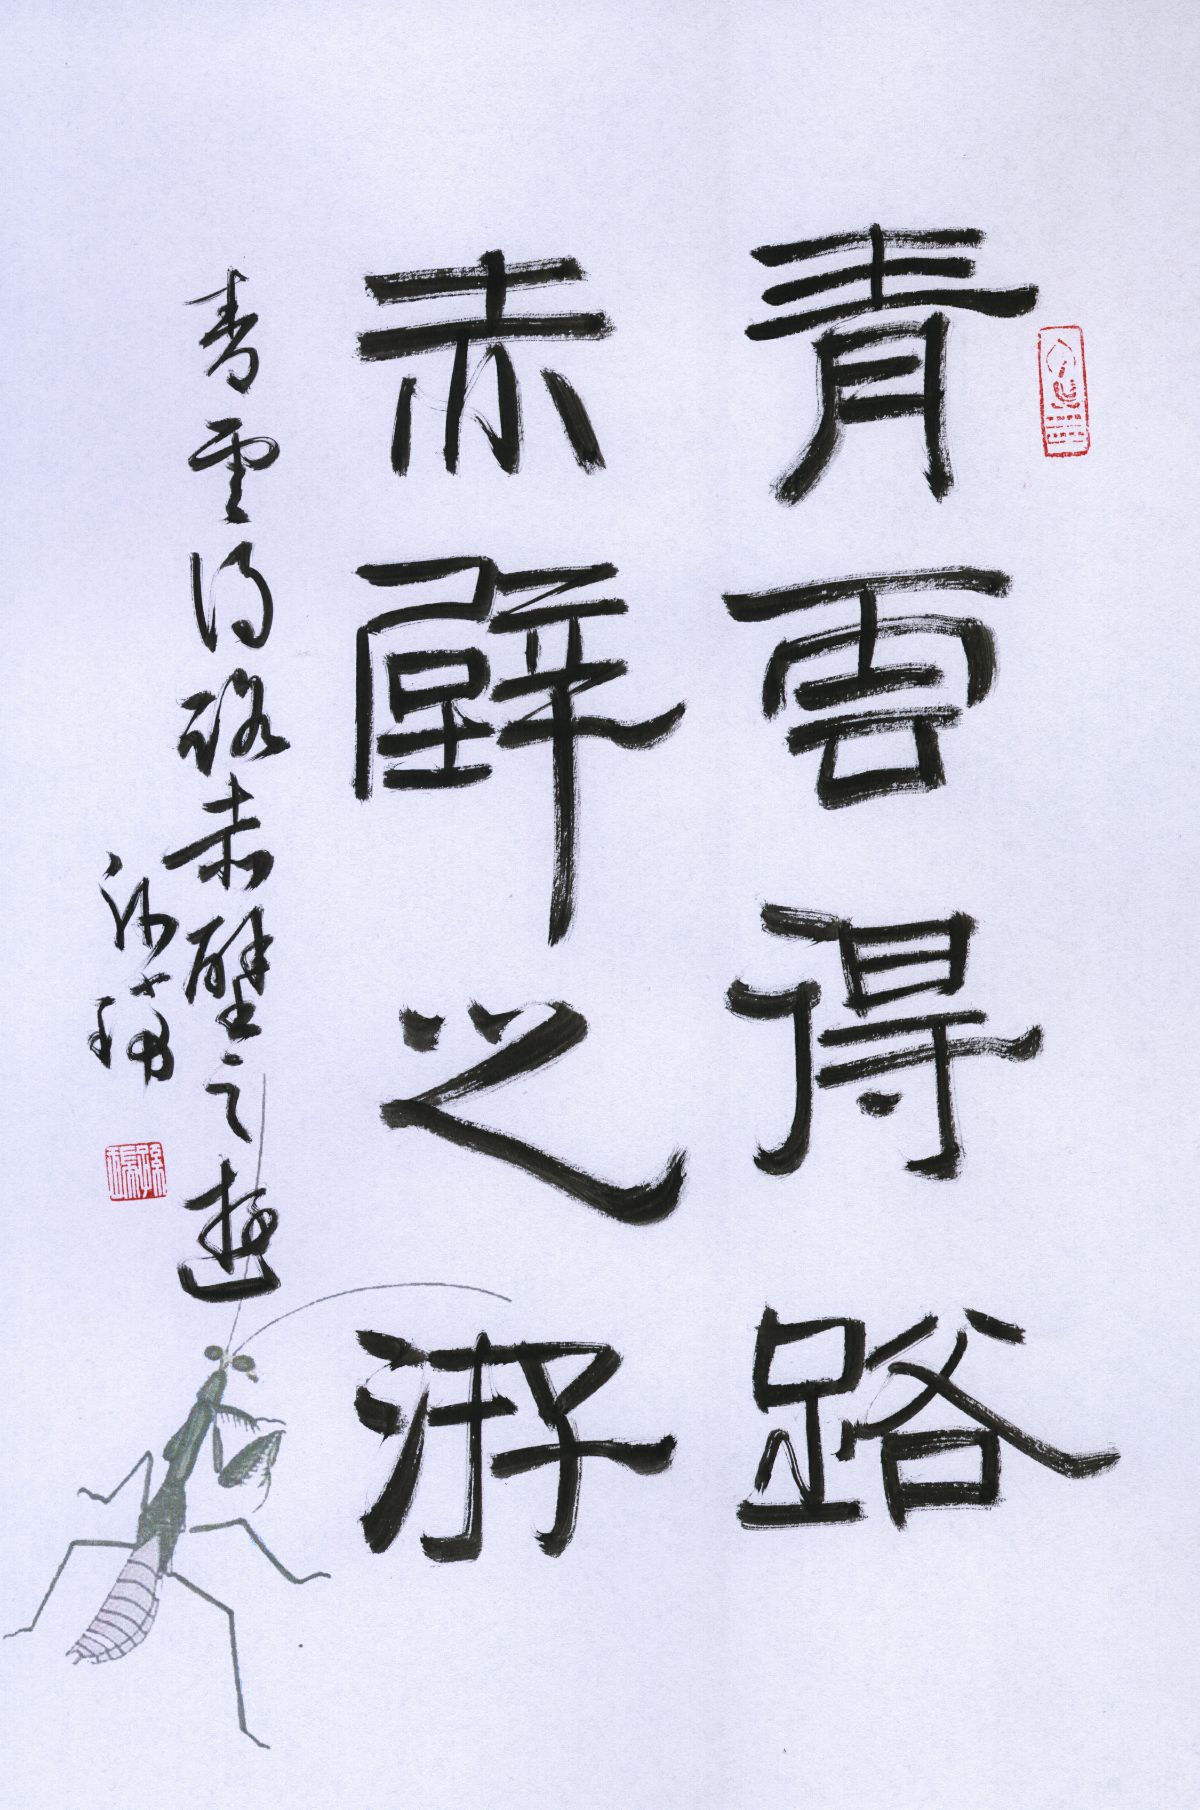 青雲得路
赤壁之游
青雲得路赤壁之遊